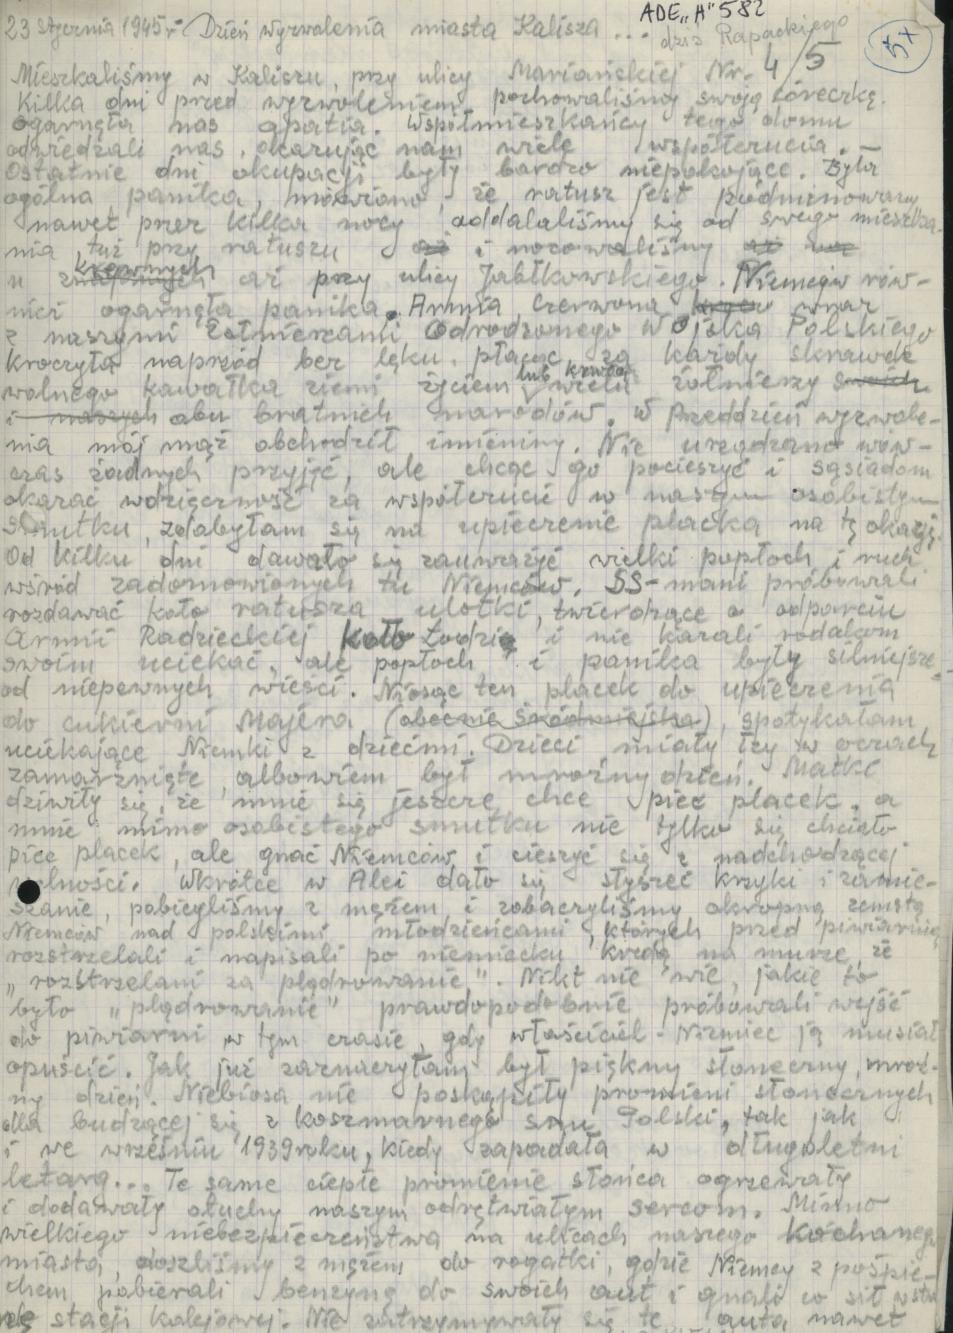 ADE „A" 582
5x
23 stycznia 1945 r. Dzień wyzwolenia miasta Kalisza ...
dziś Rapackiego
Mieszkaliśmy w Kaliszu, przy ulicy Mariańskiej Nr. 4/5
Kilka dni przed wyzwoleniem pochowaliśmy swoją córeczkę.
ogarnęła nas apatia. Współmieszkańcy tego domu
odwiedzali nas, okazując nam wiele współczucia. —
Ostatnie dni okupacji były bardzo niepokojące. Była
ogólna panika, mówiono, że ratusz jest podminowany
nawet przez kilka nocy oddalaliśmy się od swego mieszka-
nia tuż przy ratuszu i nocowaliśmy
u krewnych aż przy ulicy Jabłkowskiego. Niemców rów-
nież ogarnęła panika. Armia Czerwona wraz
z naszymi Żołnierzami Odrodzonego Wojska Polskiego
kroczyła naprzód bez lęku, płacąc za każdy skrawek
wolnego kawałka ziemi życiem lub krwią wielu żołnierzy swoich
i naszych obu bratnich narodów. W Przeddzień wyzwole-
nia mój mąż obchodził imieniny. Nie urządzano wów-
czas żadnych przyjęć, ale chcąc go pocieszyć i sąsiadom
okazać wdzięczność za współczucie w naszym osobistym
smutku, zdobyłam się na upieczenie placka na tę okazję.
Od kilku dni dawało się zauważyć wielki popłoch i ruch
wśród zadomowionych tu Niemców. SS-mani próbowali
rozdawać koło ratusza ulotki, twierdzące o odparciu
Armii Radzieckiej koło Łodzi i nie kazali rodakom
swoim uciekać, ale popłoch i panika były silniejsze
od niepewnych wieści. Niosąc ten placek do upieczenia
do cukierni Majera (obecnie Śródmiejska), spotykałam
uciekające Niemki z dziećmi. Dzieci miały łzy w oczach
zamarznięte, albowiem był mroźny dzień. Matki
dziwiły się, że mnie się jeszcze chce piec placek, a
mnie mimo osobistego smutku nie tylko się chciało
piec placek, ale gnać Niemców i cieszyć się z nadchodzącej
wolności. Wkrótce w Alei dało się słyszeć krzyki i zamie-
szanie, pobiegliśmy z mężem i zobaczyliśmy okropną zemstę
Niemców nad polskimi młodzieńcami, których przed piwiarnią
rozstrzelali i napisali po niemiecku kredą na murze, że
„rozstrzelani za plądrowanie". Nikt nie wie, jakie to
było „plądrowanie" prawdopodobnie próbowali wejść
do piwiarni w tym czasie, gdy właściciel - Niemiec ją musiał
opuścić. Jak już zaznaczyłam był piękny słoneczny, mroź-
ny dzień. Niebiosa nie poskąpiły promieni słonecznych
dla budzącej się z koszmarnego snu Polski, tak jak
i we wrześniu 1939 roku, kiedy zapadała w długoletni
letarg... Te same ciepłe promienie słońca ogrzewały
i dodawały otuchy naszym odrętwiałym sercom. Mimo
wielkiego niebezpieczeństwa na ulicach naszego kochanego
miasta, doszliśmy z mężem do rogatki, gdzie Niemcy z pośpie-
chem pobierali benzynę do swoich aut i gnali co sił w stro
nę stacji kolejowej. Nie zatrzymywały się te auta nawet